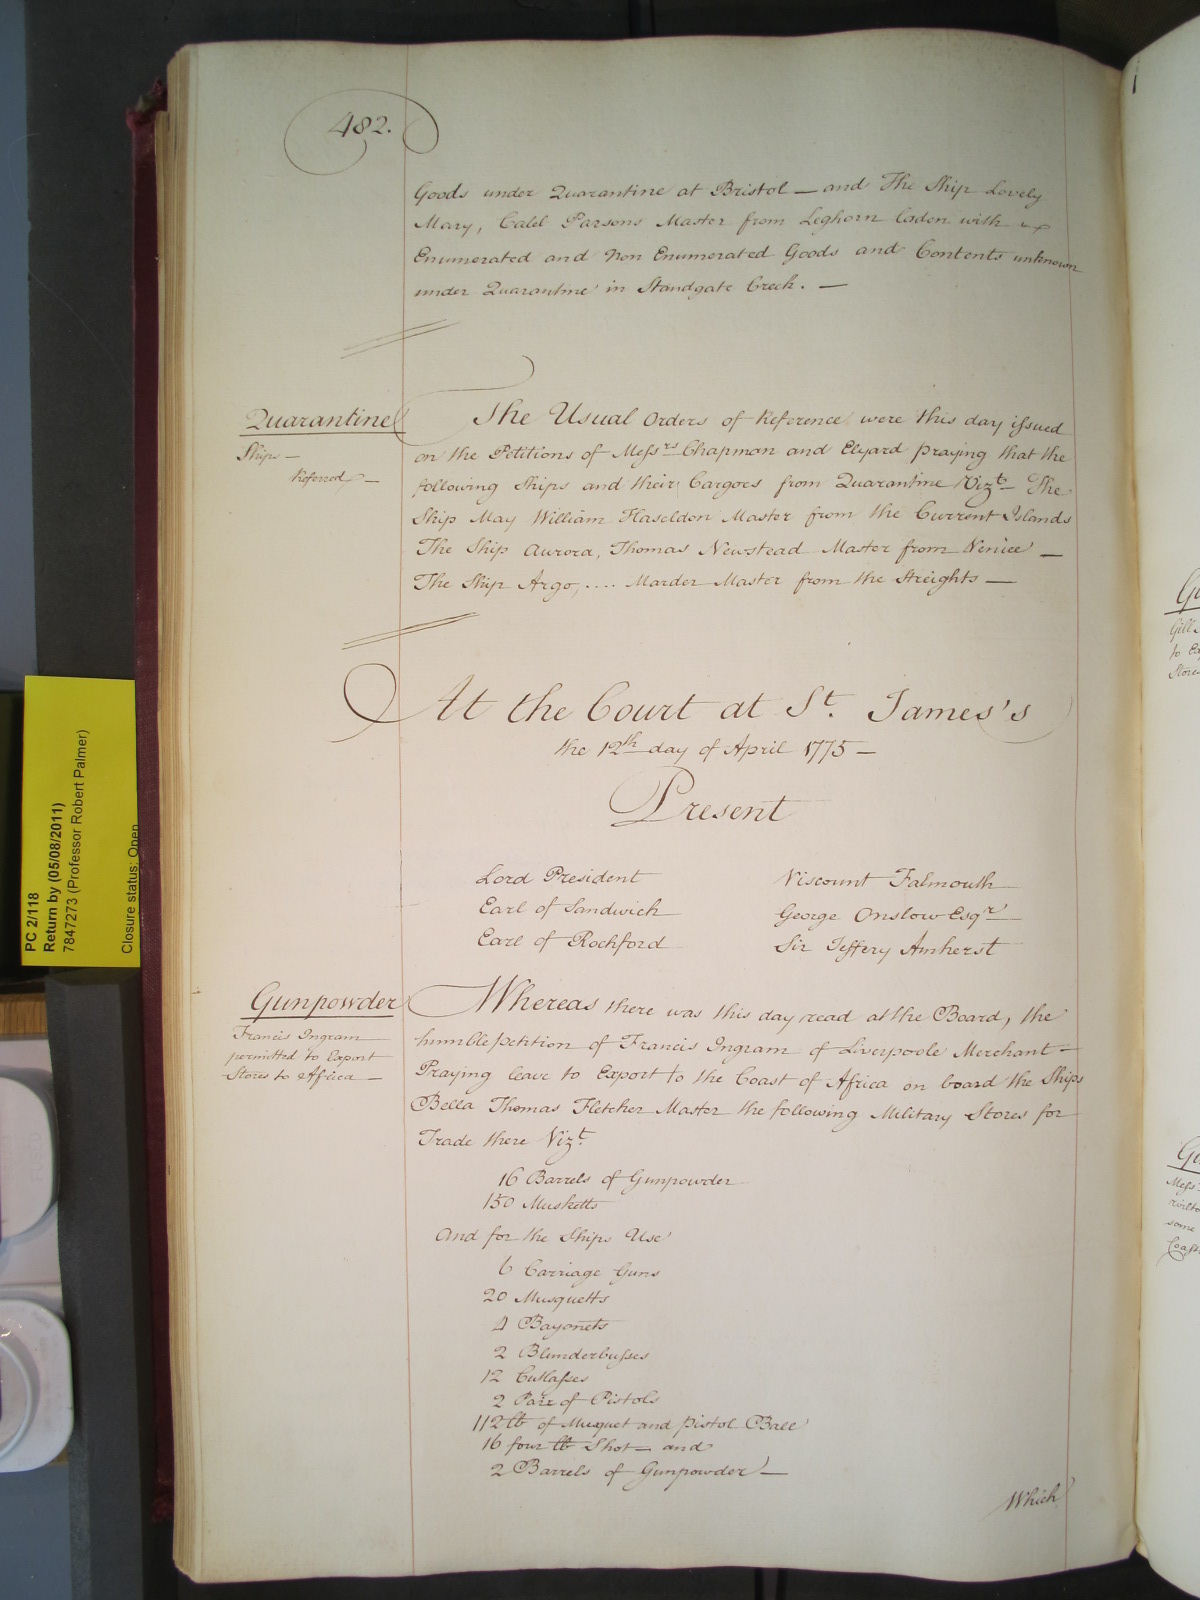 482.
Goods under Quarantine at Bristol — and The Ship Lovely
Mary, Caleb Parsons Master from Leghorn laden with
Enumerated and Non Enumerated Goods and Contents unknown
under Quarantine in Standgate Creek. —
Quarantine
Ships —
Referred —
The Usual Orders of Reference were this day issued
on the Petitions of Messrs Chapman and Elyard praying that the
following Ships and their Cargoes from Quarantine Vizt The
Ship May William Haseldon Master from the Current Islands
The Ship Aurora, Thomas Newstead Master from Venice —
The Ship Argo, .... Marder Master from the Streights —
At the Court at St. James's
the 12th day of April 1775 —
Present
Lord President
Earl of Sandwich
Earl of Rochford
Viscount Falmouth
George Onslow Esqr
Sir Jeffery Amherst
Gunpowder
Francis Ingram
permitted to Export
Stores to Africa —
Whereas there was this day read at the Board, the
humble petition of Francis Ingram of Liverpoole Merchant —
Praying leave to Export to the Coast of Africa on board the Ships
Bella Thomas Fletcher Master the following Military Stores for
Trade there Vizt.
16 Barrels of Gunpowder
150 Musketts
And for the Ships Use
6 Carriage Guns
20 Musquetts
4 Bayonets
2 Blunderbusses
12 Cutlasses
2 Pair of Pistols
112 lb of Musquet and pistol Ball
16 four lb Shot — and
2 Barrels of Gunpowder —
Which
PC 2/118
Return by (05/08/2011)
7847273 (Professor Robert Palmer)
Closure status: Open
Gill
to Ex
Stores
Messrs
some
Coast